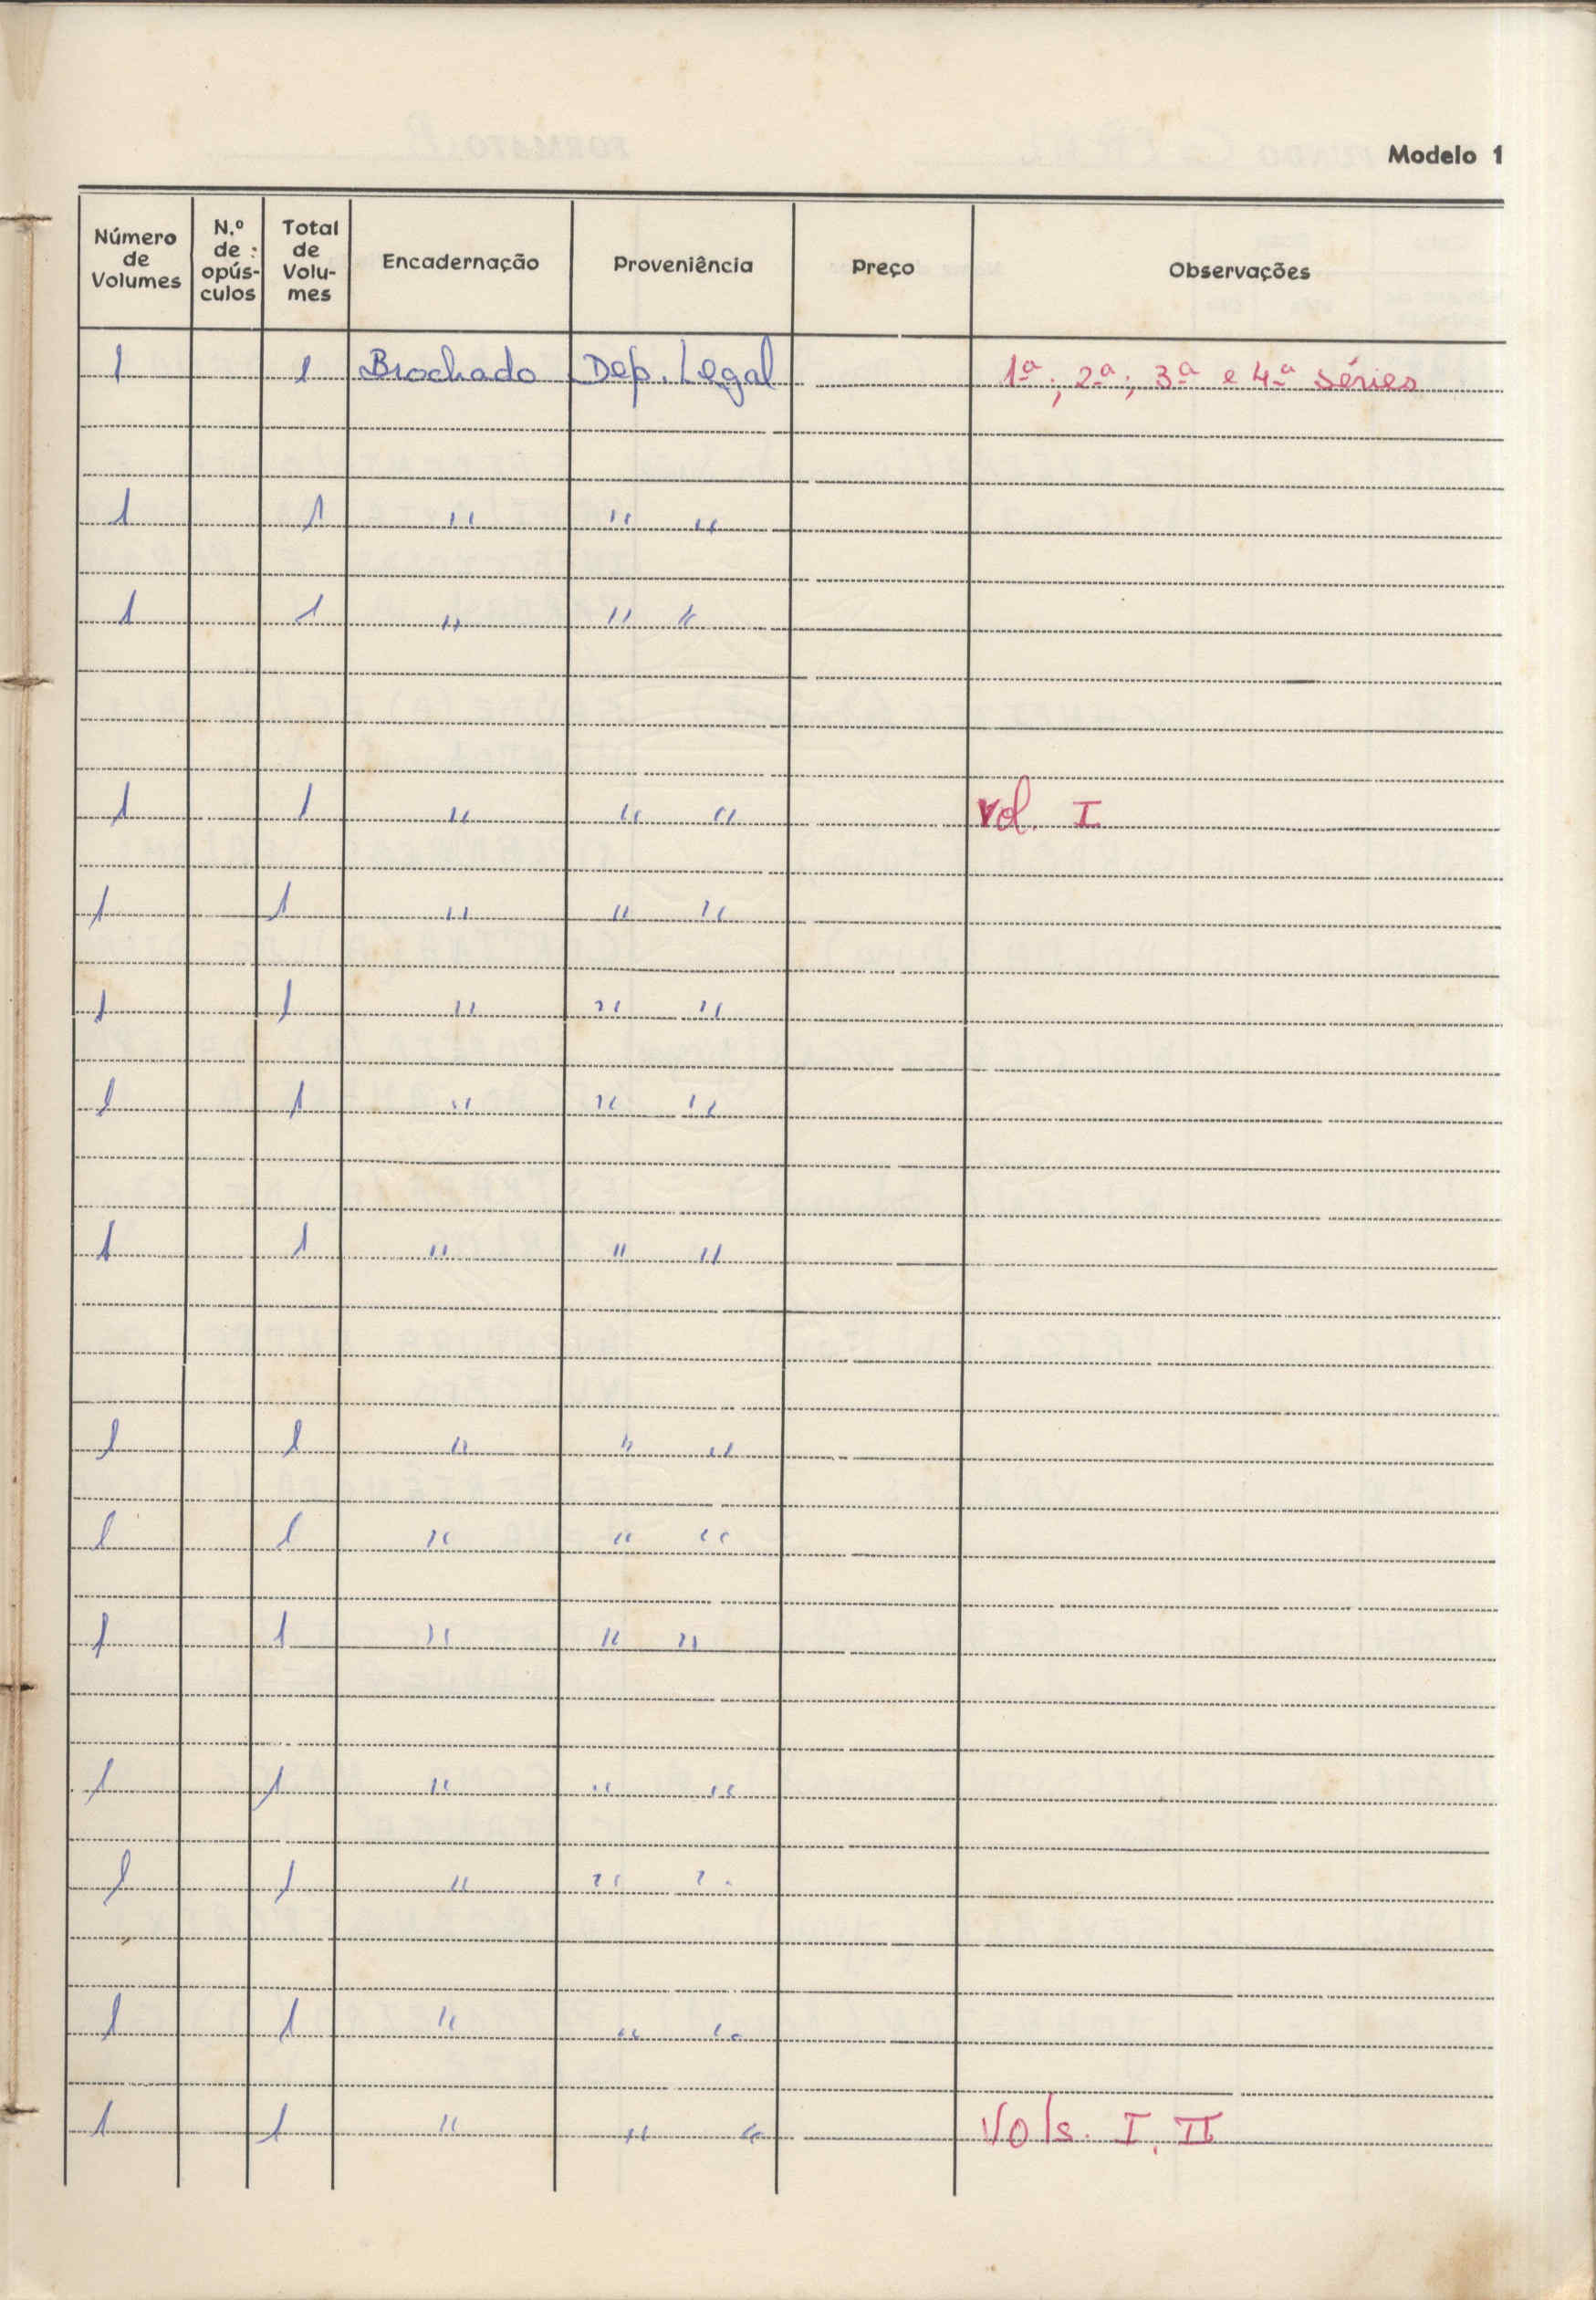 Modelo 1
Número de Volumes N.º de opús-culos Total de Volu-mes Encadernação Proveniência Preço Observações
1 1 Brochado Dep. Legal 1ª; 2ª; 3ª e 4ª séries
1 1 " " "
1 1 " " "
1 1 " " " Vol. I
1 1 " " "
1 1 " " "
1 1 " " "
1 1 " " "
1 1 " " "
1 1 " " "
1 1 " " "
1 1 " " "
1 1 " " "
1 1 " " "
1 1 " " " Vols. I, II